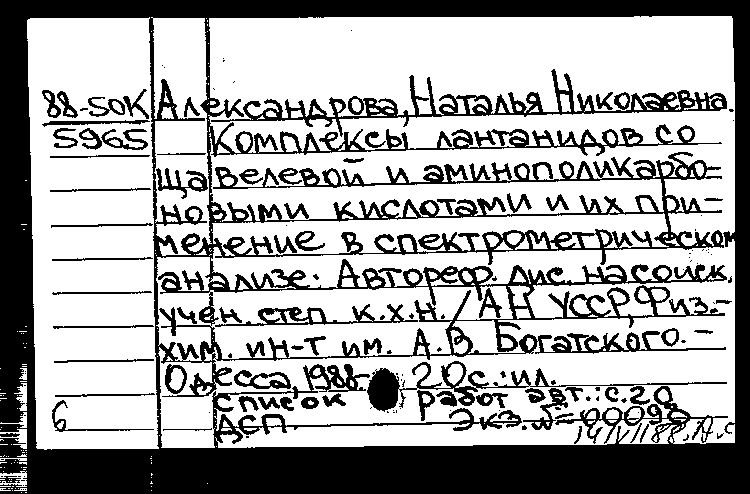 88-50К Александрова, Наталья Николаевна.
5965 Комплексы лантанидов со
щавелевой и аминополикарбо=
новыми кислотами и их при-
менение в спектрометрическом
анализе: Автореф. дис. на соиск.
учен. степ. к.х.н. / АН УССР, Физ.-
хим. ин-т им. А.В. Богатского. –
Одесса, 1988- 20с.:ил.
список работ авт.: с.20
6 ДСП. Экз.№=00098